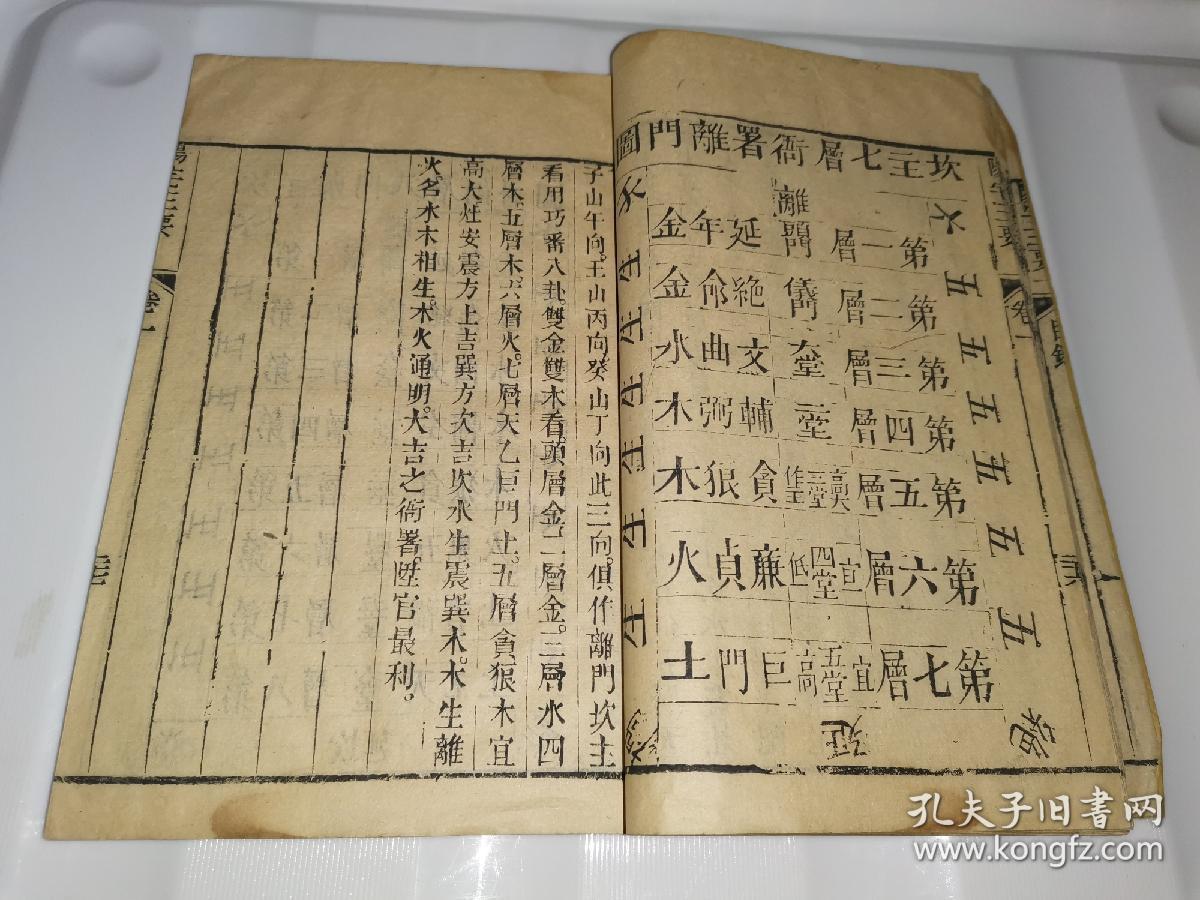 坎主七層衙署離門圖
六 五 五 五 五 五 五
第一層 離 頭門 延年 金
第二層 儀門 絶命 金
第三層 大堂 文曲 水
第四層 二堂 輔弼 木
第五層 高大 三堂 貪狼 木
第六層 宜 四堂 低 廉貞 火
第七層 宜 五堂 高 巨門 土
絶
延
生 生 生 生 生
子山午向。壬山丙向。癸山丁向此三向。俱作離門坎主
看用巧番八卦。雙金雙木看。頭層金。二層金。三層水四
層木。五層木。六層火。七層天乙巨門土。五層貪狼木宜
高大灶安震方上吉巽方次吉坎水生震巽木。木生離
火。名水木相生。木火通明。大吉之衙署。陞官最利。
陽宅三要
卷一
陽宅三要
卷一
目錄
孔夫子旧书网
www.kongfz.com